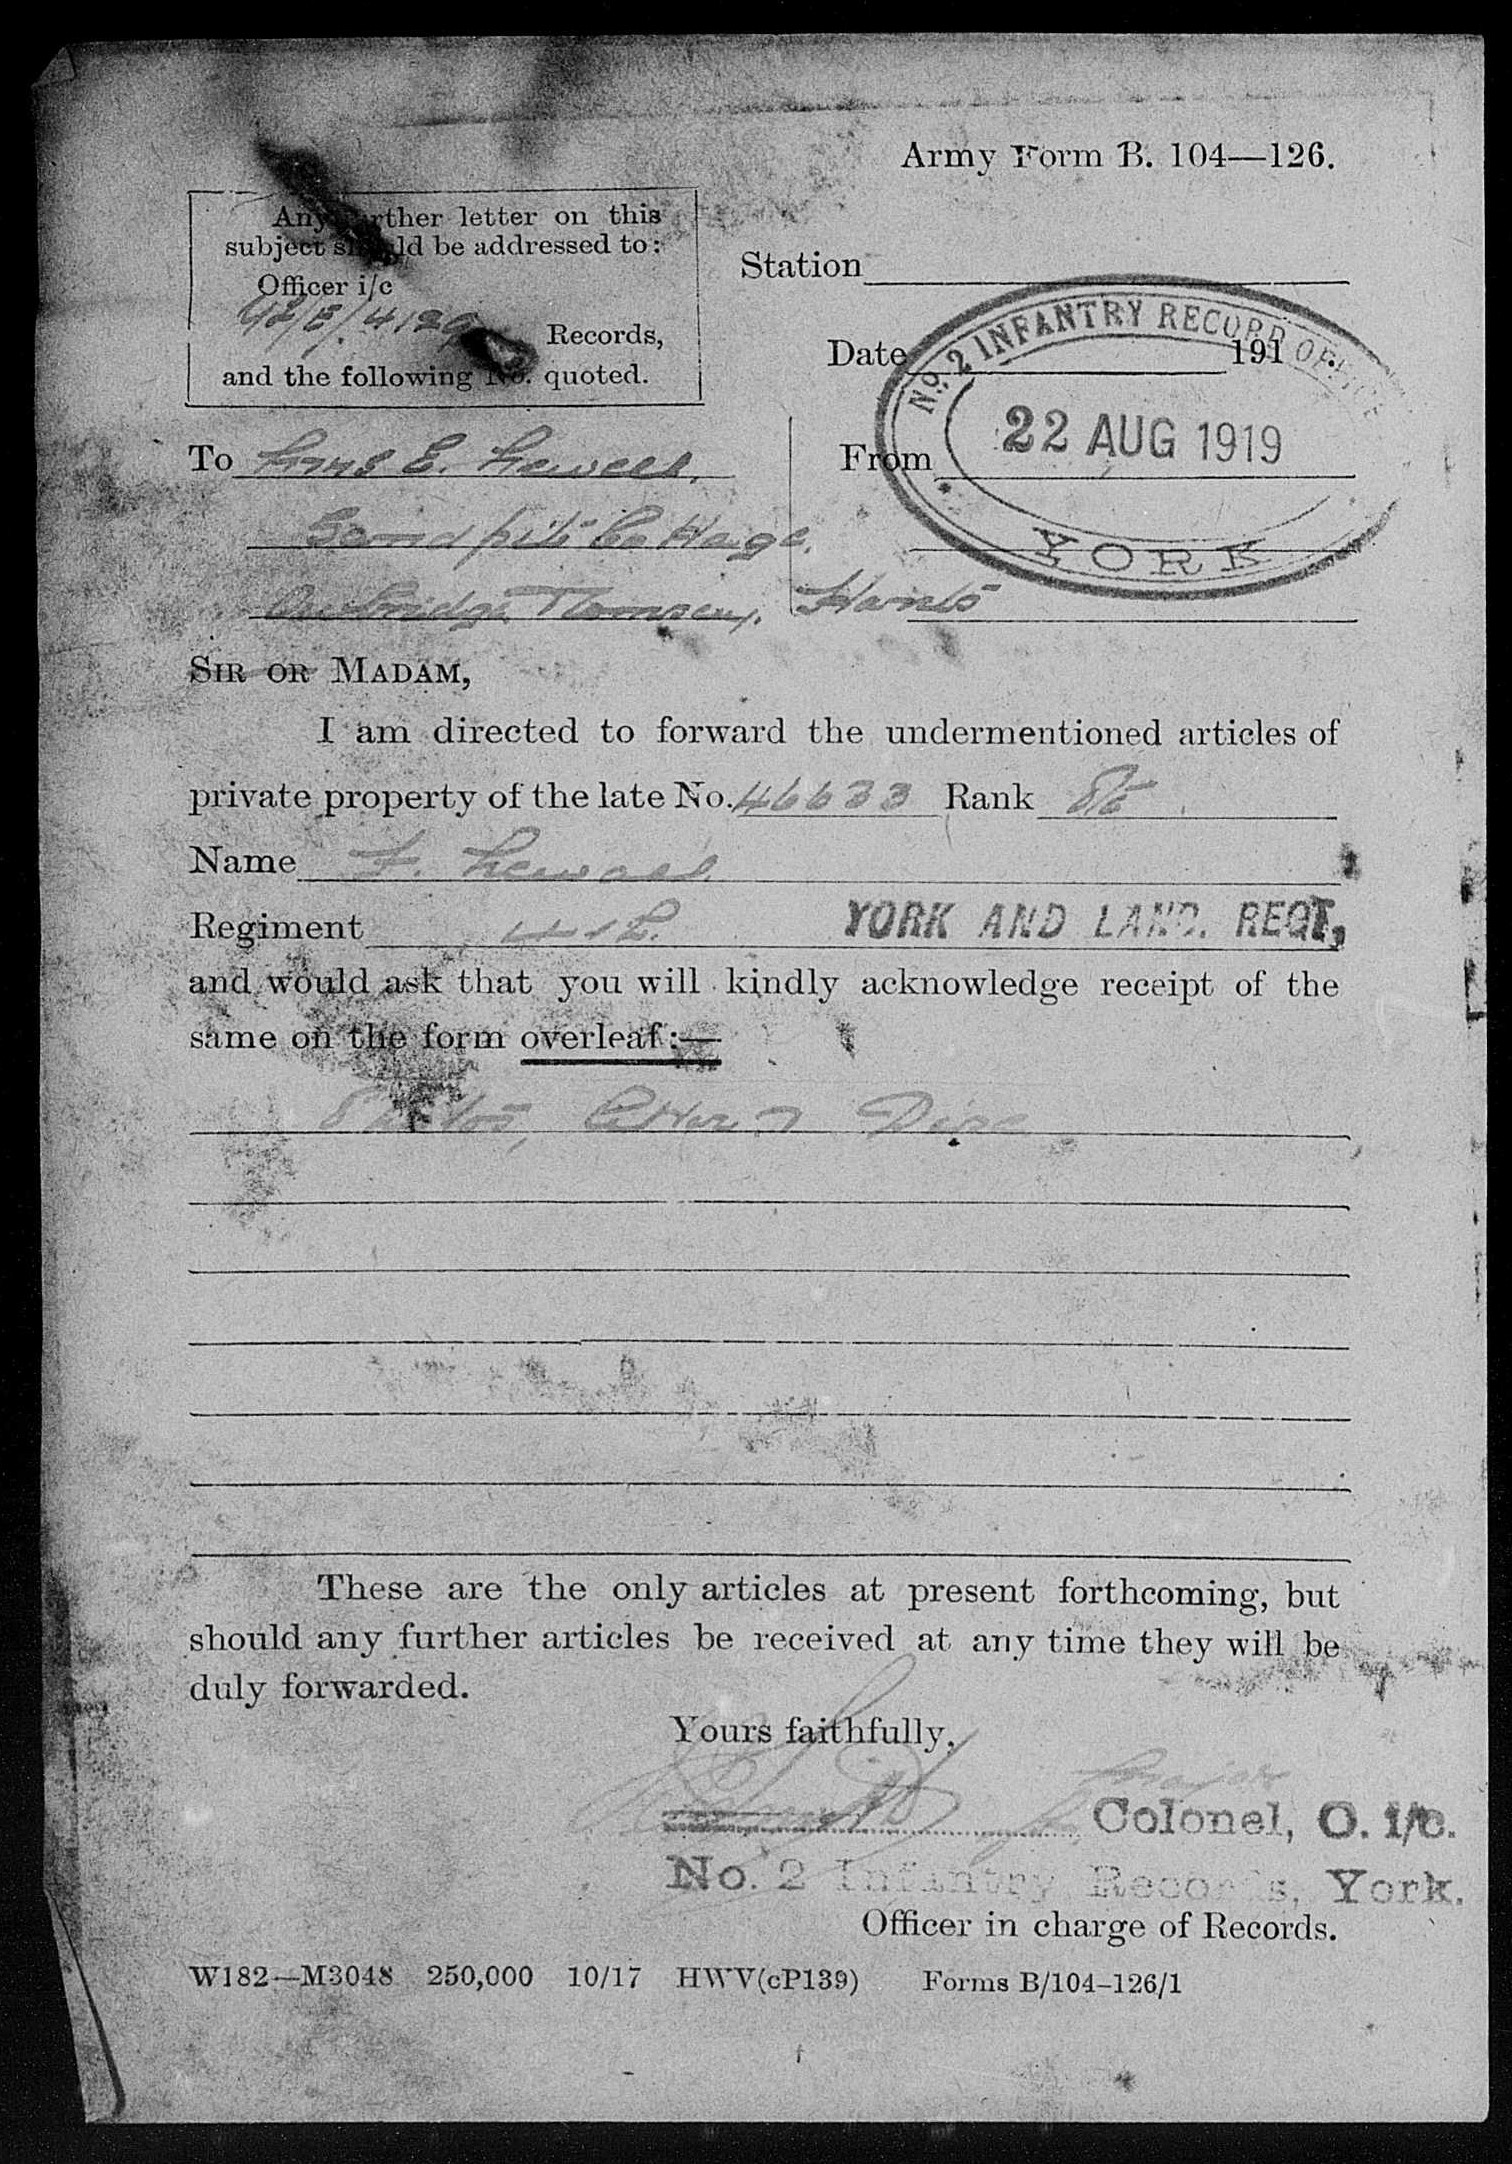 Army Form B. 104—126.
Any further letter on this
subject should be addressed to:
Officer i/c
42/E/4129
Records,
and the following No. quoted.
Station
Date 191
No. 2 INFANTRY RECORD OFFICE
22 AUG 1919
YORK
To Mrs E. Lewell,
From
Sandpit Cottage,
Awbridge Romsey, Hants
SIR OR MADAM,
I am directed to forward the undermentioned articles of
private property of the late No. 46633 Rank Pte
Name F. Lewell
Regiment YORK AND LANC. REGT,
and would ask that you will kindly acknowledge receipt of the
same on the form overleaf:—
Photos, Disc
These are the only articles at present forthcoming, but
should any further articles be received at any time they will be
duly forwarded.
Yours faithfully,
Major
Colonel, O. i/c.
No. 2 Infantry Records, York.
Officer in charge of Records.
W182—M3048 250,000 10/17 HWV(cP139) Forms B/104-126/1